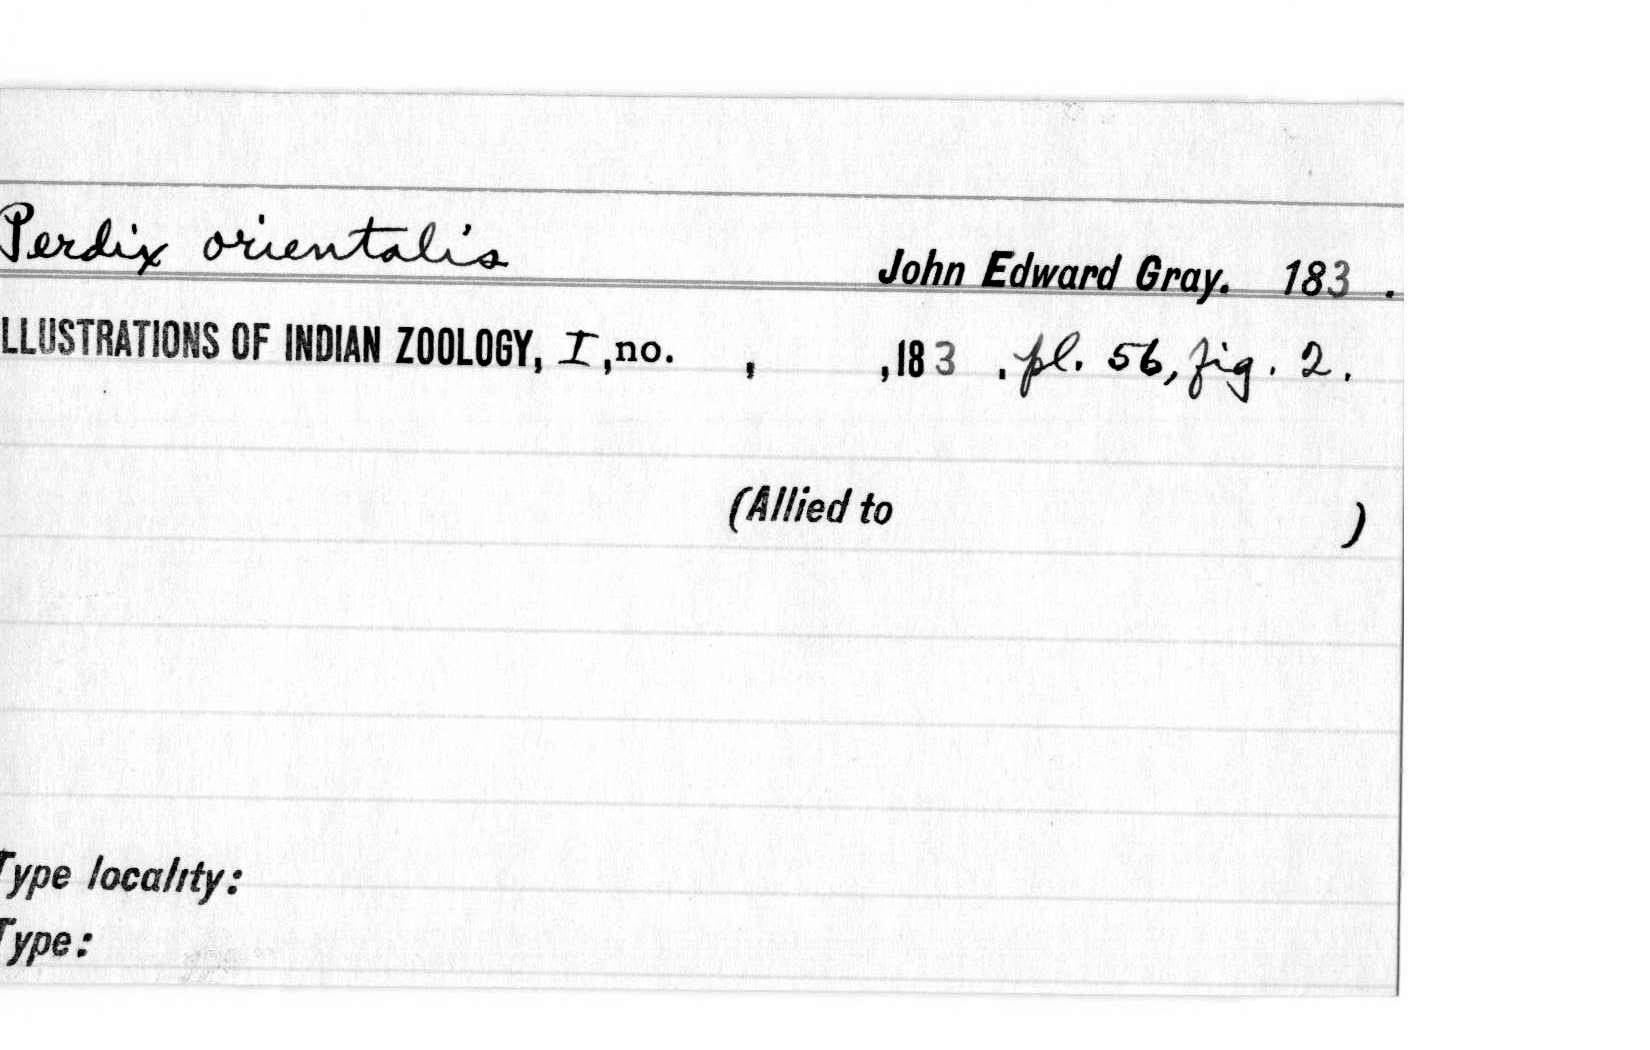 Perdix orientalis John Edward Gray. 183 .
LLUSTRATIONS OF INDIAN ZOOLOGY, I, no. , ,183 , pl. 56, fig. 2.
(Allied to )
Type locality:
Type: